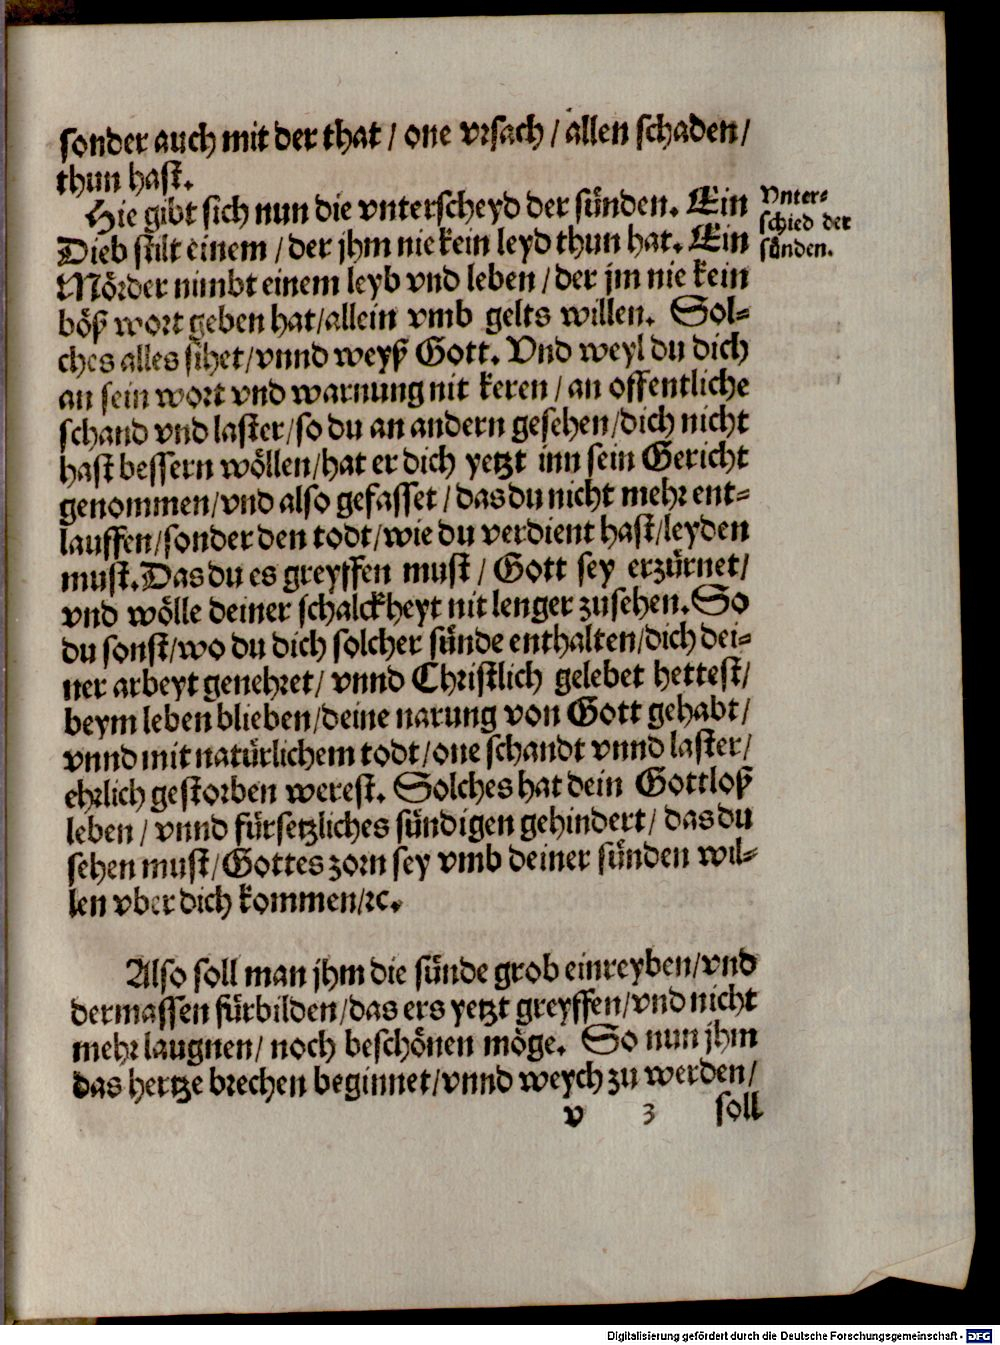 sonder auch mit der that / one vrsach / allen schaden /
thun hast.
Hie gibt sich nun die vnterscheyd der sünden. Ein
Dieb stilt einem / der jhm nie kein leyd thun hat. Ein
Mörder nimbt einem leyb vnd leben / der jm nie kein
böß wort geben hat/allein vmb gelts willen. Sol⸗
ches alles sihet/vnnd weyß Gott. Vnd weyl du dich
an sein wort vnd warnung nit keren / an offentliche
schand vnd laster/so du an andern gesehen/dich nicht
hast bessern wöllen/hat er dich yetzt inn sein Gericht
genommen/vnd also gefasset / das du nicht mehr ent⸗
lauffen/sonder den todt/wie du verdient hast/leyden
must. Das du es greyffen must / Gott sey erzürnet/
vnd wölle deiner schalckheyt nit lenger zusehen. So
du sonst/wo du dich solcher sünde enthalten/dich dei⸗
ner arbeyt genehret/ vnnd Christlich gelebet hettest/
beym leben blieben/deine narung von Gott gehabt/
vnnd mit natürlichem todt/one schandt vnnd laster/
ehrlich gestorben werest. Solches hat dein Gottloß
leben / vnnd fürsetzliches sündigen gehindert/ das du
sehen must/Gottes zorn sey vmb deiner sünden wil⸗
len vber dich kommen/ꝛc.
Vnter⸗
schied der
sünden.
Also soll man jhm die sünde grob einreyben/vnd
dermassen fürbilden/das ers yetzt greyffen/vnd nicht
mehr laugnen/ noch beschönen möge. So nun jhm
das hertze brechen beginnet/vnnd weych zu werden/
v 3 soll
Digitalisierung gefördert durch die Deutsche Forschungsgemeinschaft - DFG